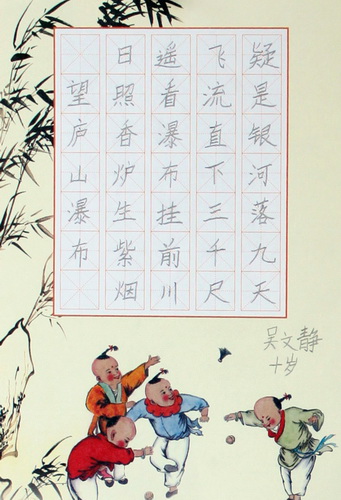 望庐山瀑布
日照香炉生紫烟
遥看瀑布挂前川
飞流直下三千尺
疑是银河落九天
吴文静
十岁